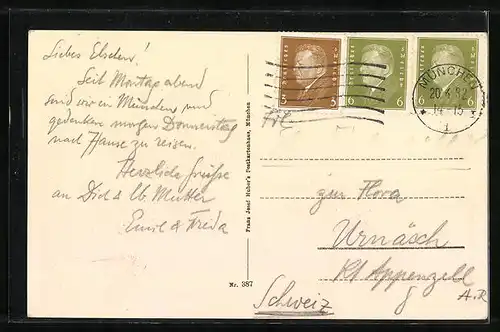 Liebes Elschen!
Seit Montag abend
sind wir in München und
gedenken morgen Donnerstag
nach Hause zu reisen.
Herzliche Grüsse
an Dich & lb. Mutter
Emil & Frieda
Franz Josef Huber's Postkartenhaus, München
Nr. 387
DEUTSCHES REICH
3 3
6 6
6 6
MÜNCHEN
20.4.32
1
Frl.
zur Flora
Urnäsch
Kt Appenzell
A.R
Schweiz